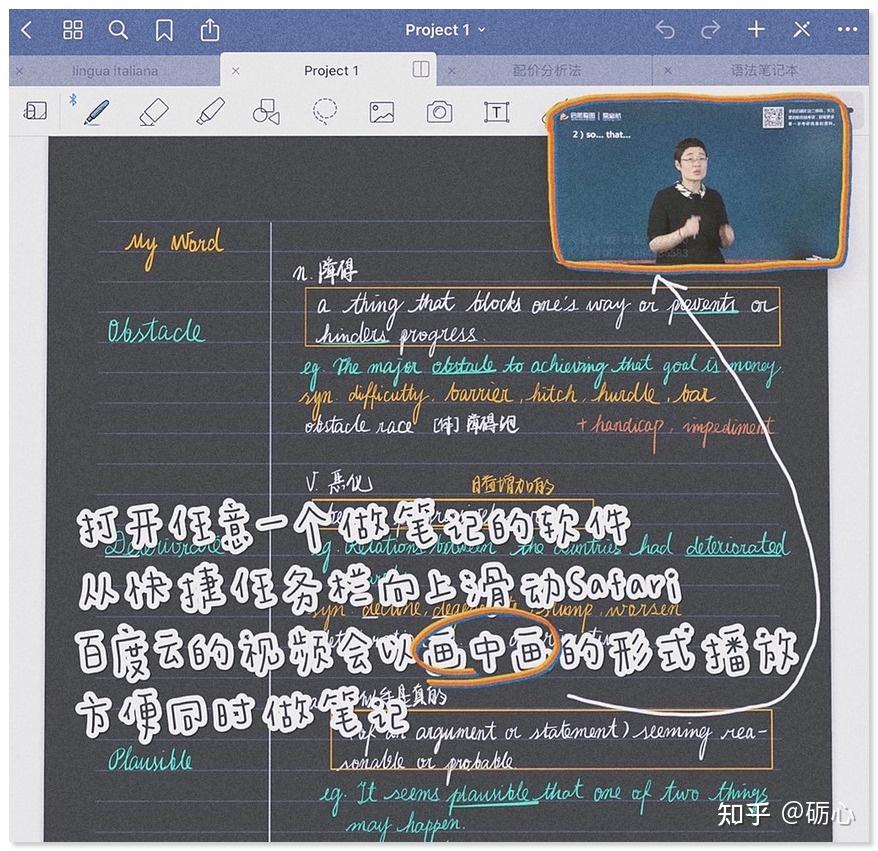 Project 1
lingua italiana
Project 1
配价分析法
语法笔记本
T
2) so... that...
My Word
n. 障碍
a thing that blocks one's way or prevents or
hinders progress.
Obstacle
eg. The major obstacle to achieving that goal is money.
syn. difficulty, barrier, hitch, hurdle, bar
obstacle race [体] 障碍跑
+ handicap, impediment
v. 恶化
打开任意一个做笔记的软件
Deteriorate
eg. Relations between the countries had deteriorated
从快捷任务栏向上滑动Safari
syn. decline, slump, worsen
百度云的视频会以画中画的形式播放
方便同时做笔记
(of an argument or statement) seeming rea-
sonable or probable
Plausible
eg. It seems plausible that one of two things
may happen.
知乎 @砺心